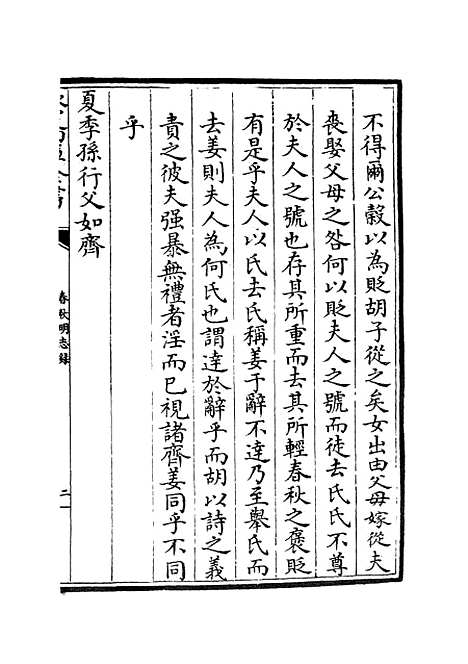 不得爾公穀以為貶胡子從之矣女出由父母嫁從夫
喪娶父母之咎何以貶夫人之號而徒去氏氏不尊
於夫人之號也存其所重而去其所輕春秋之褒貶
有是乎夫人以氏去氏稱姜于辭不達乃至舉氏而
去姜則夫人為何氏也謂達於辭乎而胡以詩之義
責之彼夫强暴無禮者淫而已視諸齊姜同乎不同
乎
夏季孫行父如齊
春秋明志錄
二一